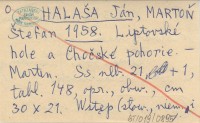 O HALAŠA Ján, MARTOŇ
Štefan 1958. Liptovské
hole a Chočské pohorie. -
Martin. Ss. nlb. 21, + 1,
tabl. 148, opr., obw., cm
30 x 21. Wstęp słow., niem.